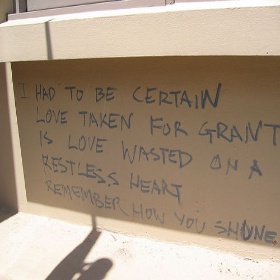 I HAD TO BE CERTAIN
LOVE TAKEN FOR GRANT
IS LOVE WASTED ON A
RESTLESS HEART
REMEMBER HOW YOU SHONE